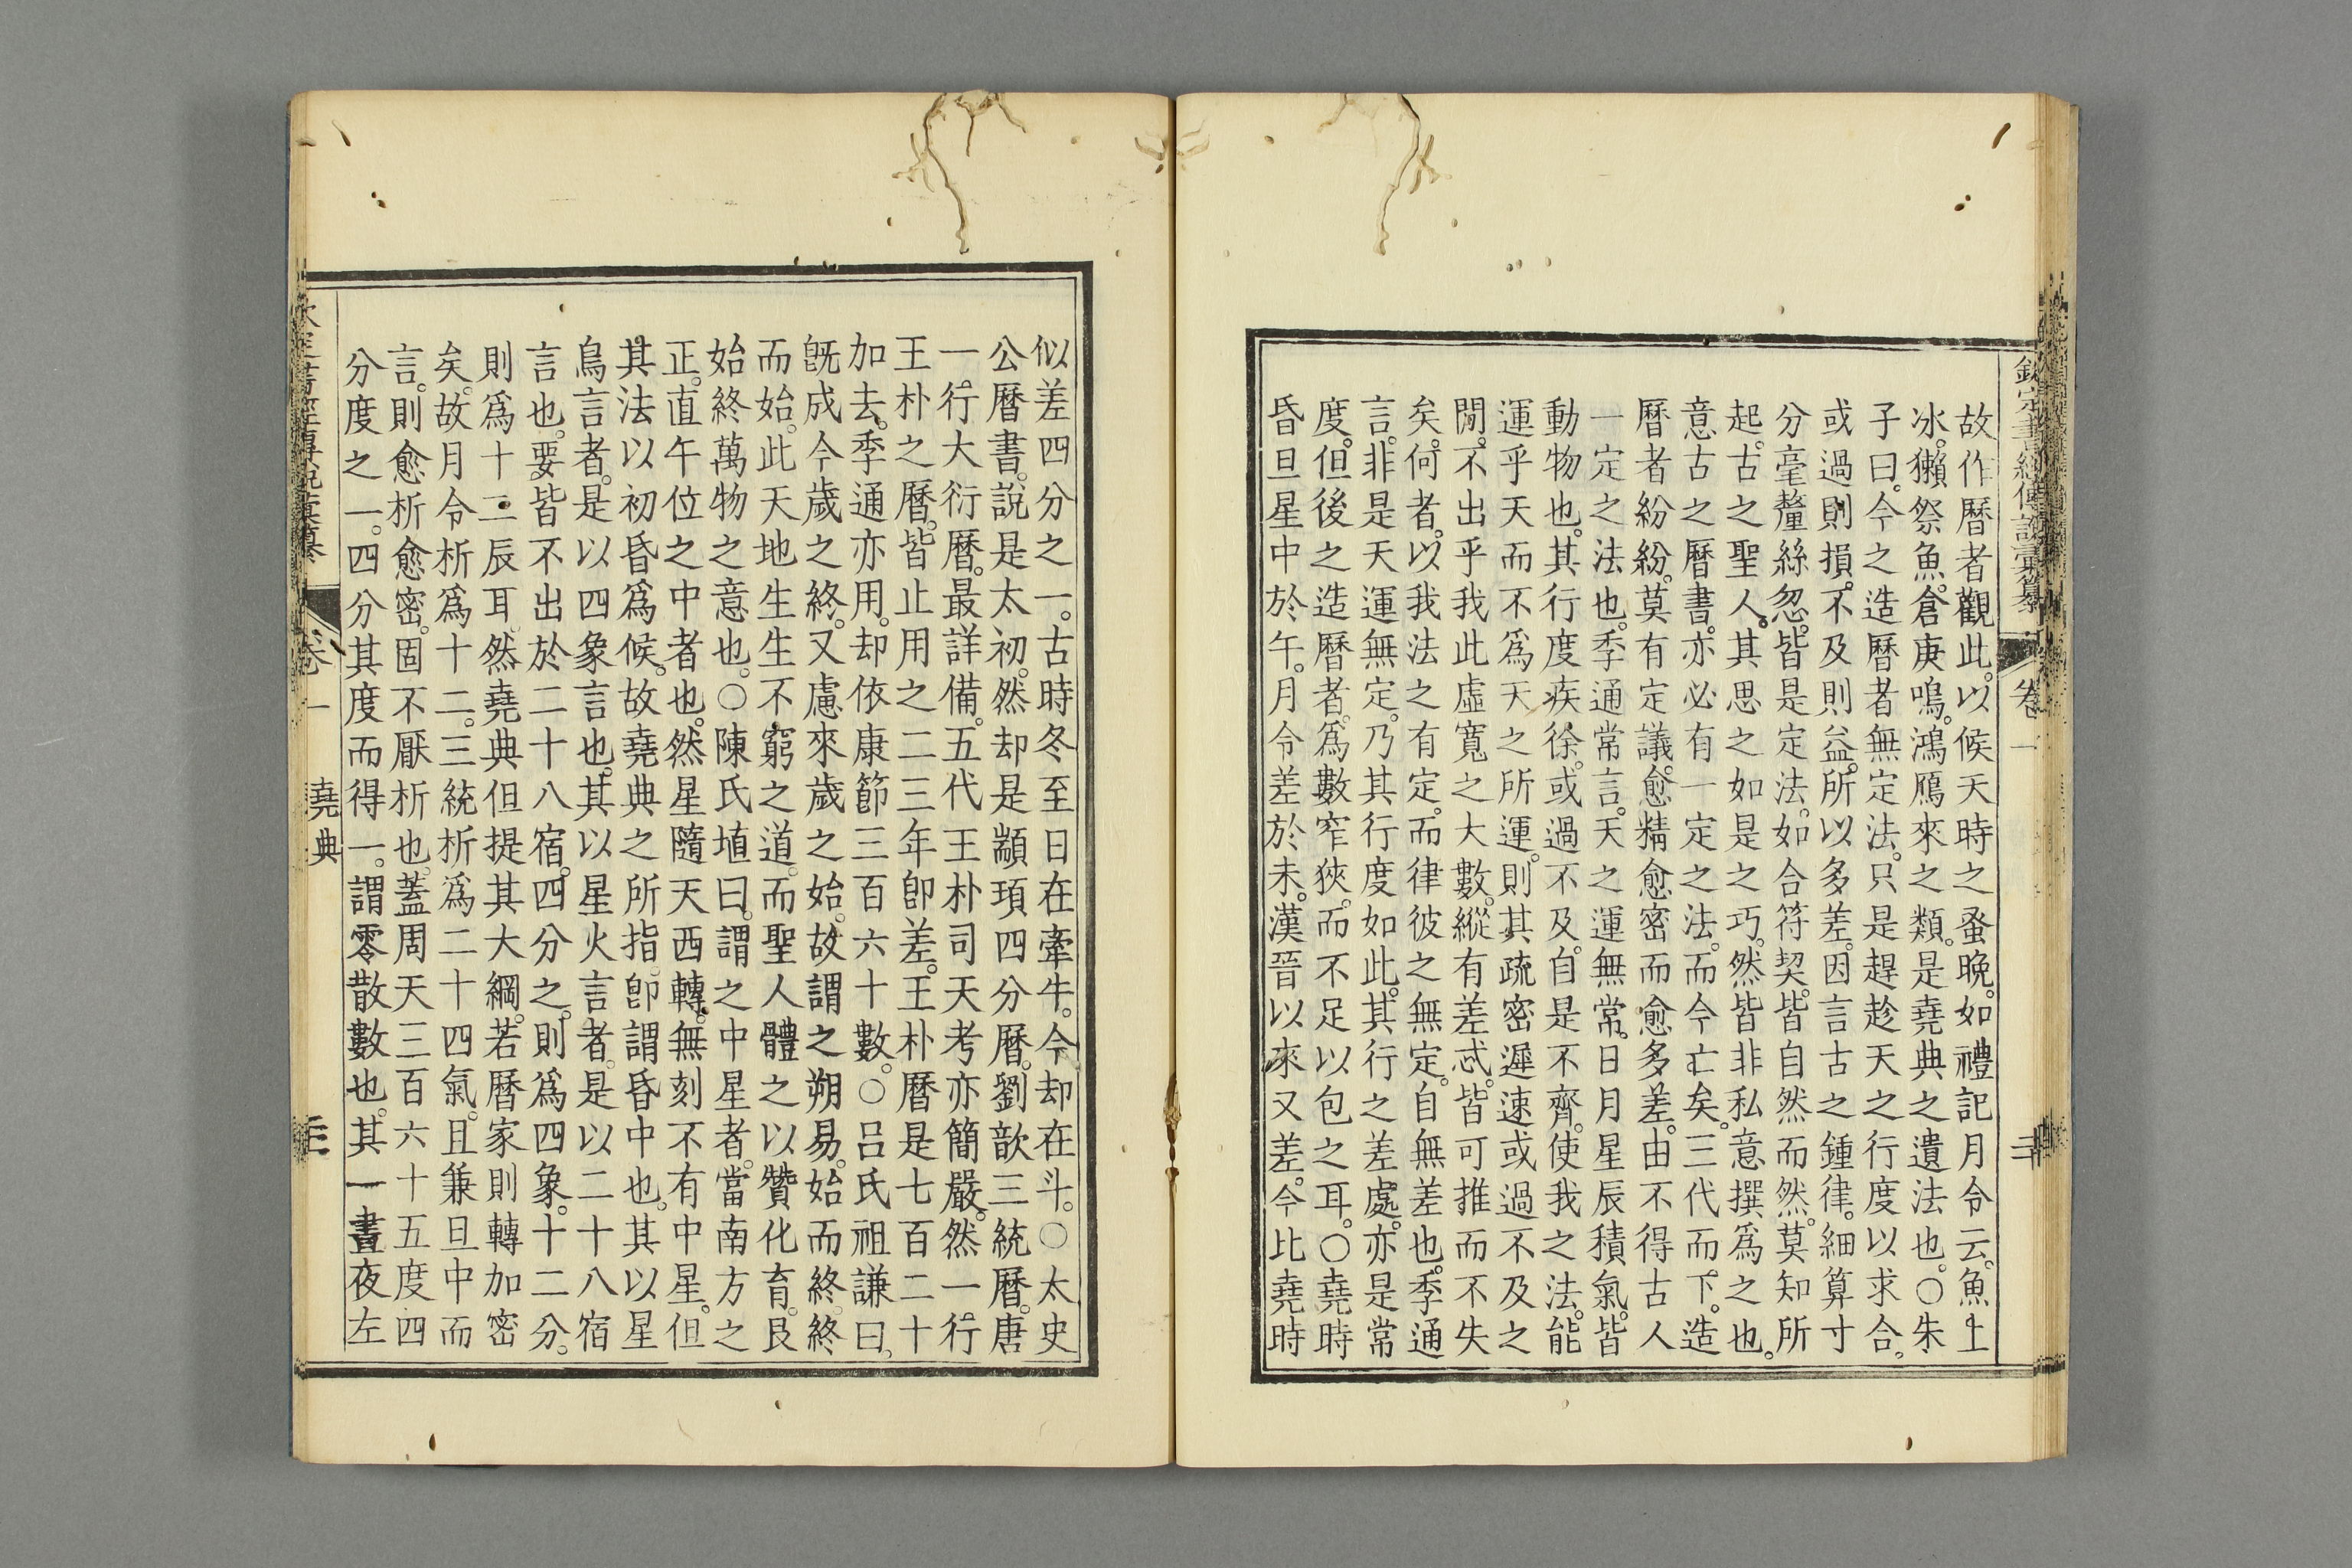 欽定書經傳說彙纂 卷一 二
故作曆者觀此。以候天時之蚤晚。如禮記月令云。魚上
冰。獺祭魚。倉庚鳴。鴻鴈來之類。是堯典之遺法也。○朱
子曰。今之造曆者無定法。只是趕趁天之行度以求合。
或過則損。不及則益。所以多差。因言古之鍾律。細算寸
分毫釐絲忽。皆是定法。如合符契。皆自然而然。莫知所
起。古之聖人。其思之如是之巧。然皆非私意撰爲之也。
意古之曆書。亦必有一定之法。而今亡矣。三代而下。造
曆者紛紛。莫有定議。愈精愈密而愈多差。由不得古人
一定之法也。季通常言。天之運無常。日月星辰積氣。皆
動物也。其行度疾徐。或過不及。自是不齊。使我之法。能
運乎天而不爲天之所運。則其疏密遲速或過不及之
閒。不出乎我此虛寬之大數。縱有差忒。皆可推而不失
矣。何者。以我法之有定。而律彼之無定。自無差也。季通
言。非是天運無定。乃其行度如此。其行之差處。亦是常
度。但後之造曆者。爲數窄狹。而不足以包之耳。○堯時
昏旦星中於午。月令差於未。漢晉以來又差。今比堯時
似差四分之一。古時冬至日在牽牛。今却在斗。○太史
公曆書。說是太初。然却是顓頊四分曆。劉歆三統曆。唐
一行大衍曆。最詳備。五代王朴司天考亦簡嚴。然一行
王朴之曆。皆止用之二三年卽差。王朴曆是七百二十
加去。季通亦用。却依康節三百六十數。○呂氏祖謙曰。
旣成今歲之終。又慮來歲之始。故謂之朔易。始而終終
而始。此天地生生不窮之道。而聖人體之以贊化育。艮
始終萬物之意也。○陳氏埴曰。謂之中星者。當南方之
正。直午位之中者也。然星隨天西轉。無刻不有中星。但
其法以初昏爲候。故堯典之所指。卽謂昏中也。其以星
鳥言者。是以四象言也。其以星火言者。是以二十八宿
言也。要皆不出於二十八宿。四分之。則爲四象。十二分。
則爲十二辰耳。然堯典但提其大綱。若曆家則轉加密
矣。故月令析爲十二。三統析爲二十四氣。且兼旦中而
言。則愈析愈密。固不厭析也。蓋周天三百六十五度四
分度之一。四分其度而得一。謂零散數也。其一晝夜左
卷一 堯典 三